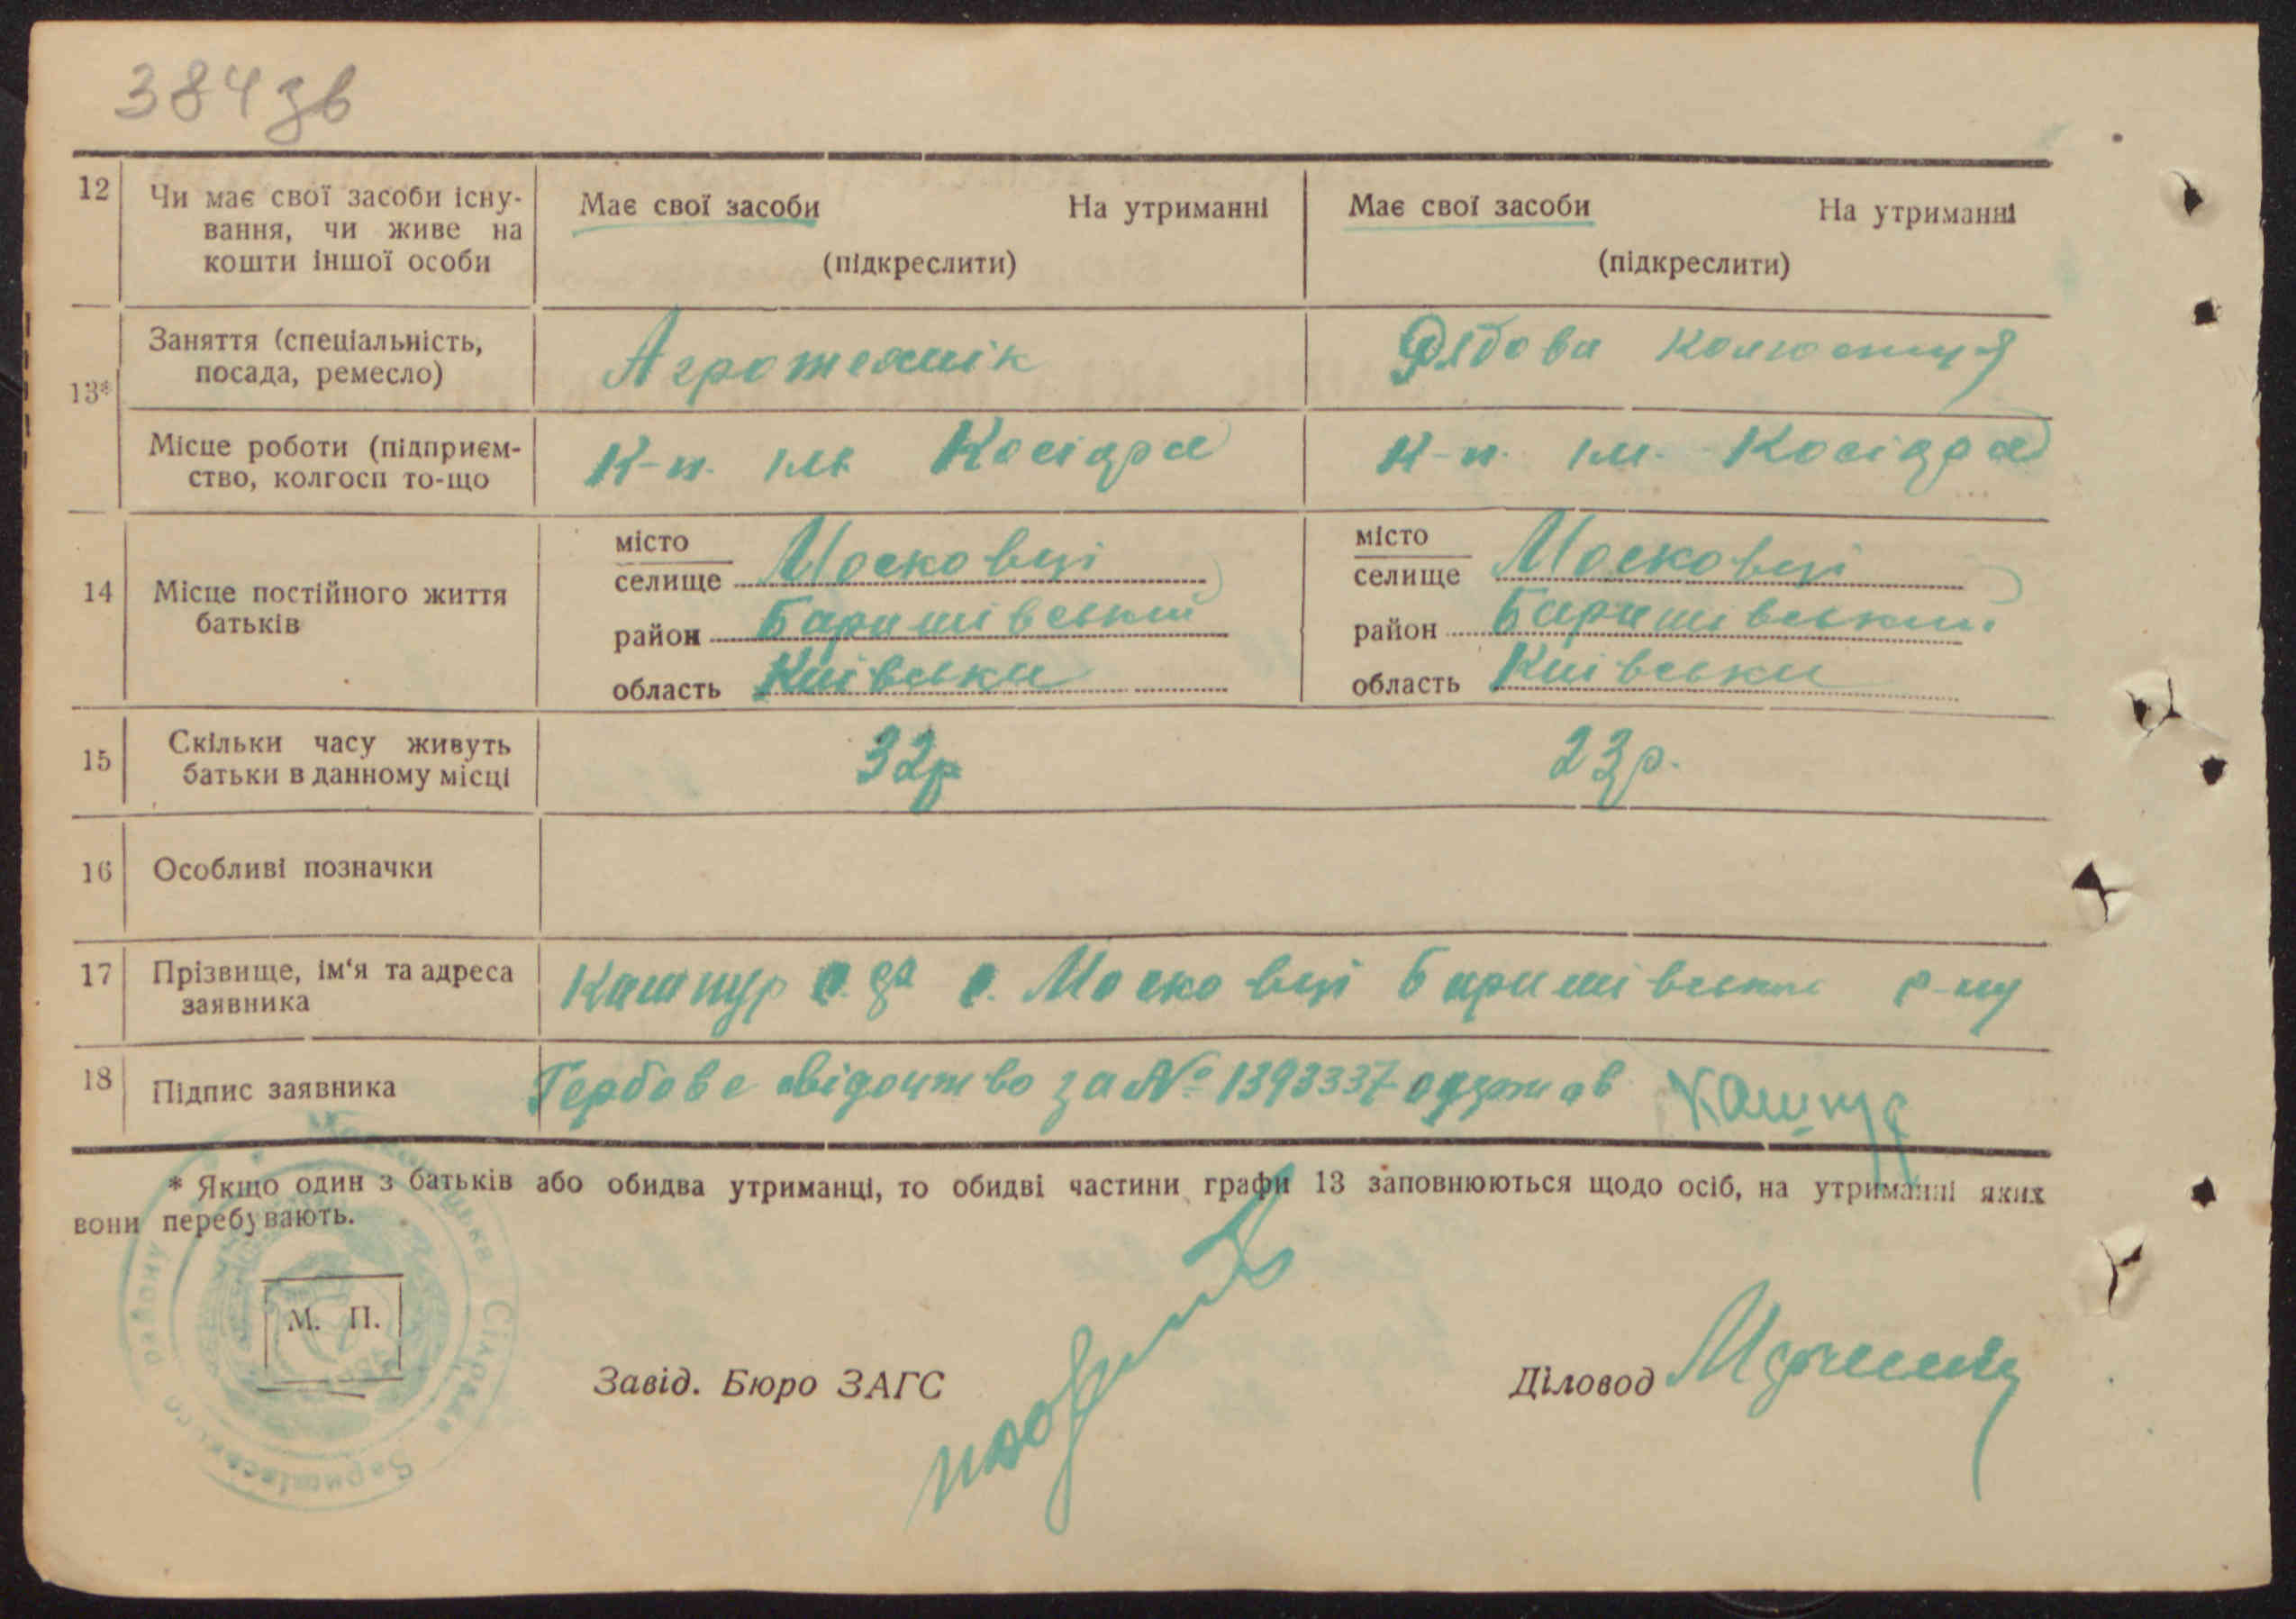 384 зв
12 Чи має свої засоби існу- Має свої засоби На утриманні Має свої засоби На утриманні
вання, чи живе на
кошти іншої особи (підкреслити) (підкреслити)
Заняття (спеціальність, Агротехнік Рядова
13* посада, ремесло)
Місце роботи (підприєм- К-п. ім. Косіора К-п. ім. Косіора
ство, колгосп то-що
місто місто
селище Московці селище Московці
14 Місце постійного життя
батьків район Баришівський район Баришівський
область Київська область Київська
15 Скільки часу живуть 32р 23р.
батьки в данному місці
16 Особливі позначки
17 Прізвище, ім‘я та адреса Кашпур с. Московці Баришівськ р-ну
заявника
18 Підпис заявника Гербове свідоцтво за № 1393337 одержав Кашпур
* Якщо один з батьків або обидва утриманці, то обидві частини графи 13 заповнюються щодо осіб, на утриманні яких
вони перебувають.
М. П.
Завід. Бюро ЗАГС Діловод